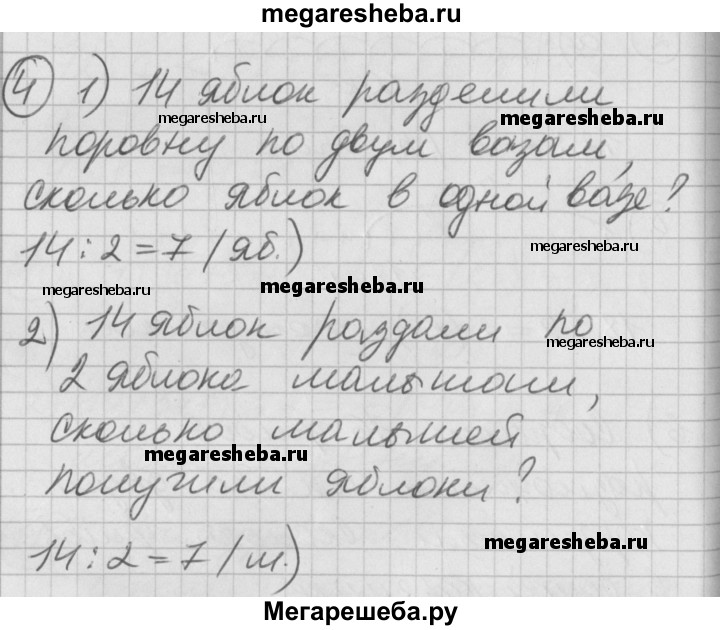 megaresheba.ru
4 1) 14 яблок разделили
megaresheba.ru megaresheba.ru
поровну по двум вазам,
сколько яблок в одной вазе?
14:2=7 (яб.) megaresheba.ru
megaresheba.ru megaresheba.ru
2) 14 яблок раздали по
megaresheba.ru
2 яблока малышам,
сколько малышей
megaresheba.ru
получили яблоки?
14:2=7 (м.) megaresheba.ru
Мегарешеба.ру